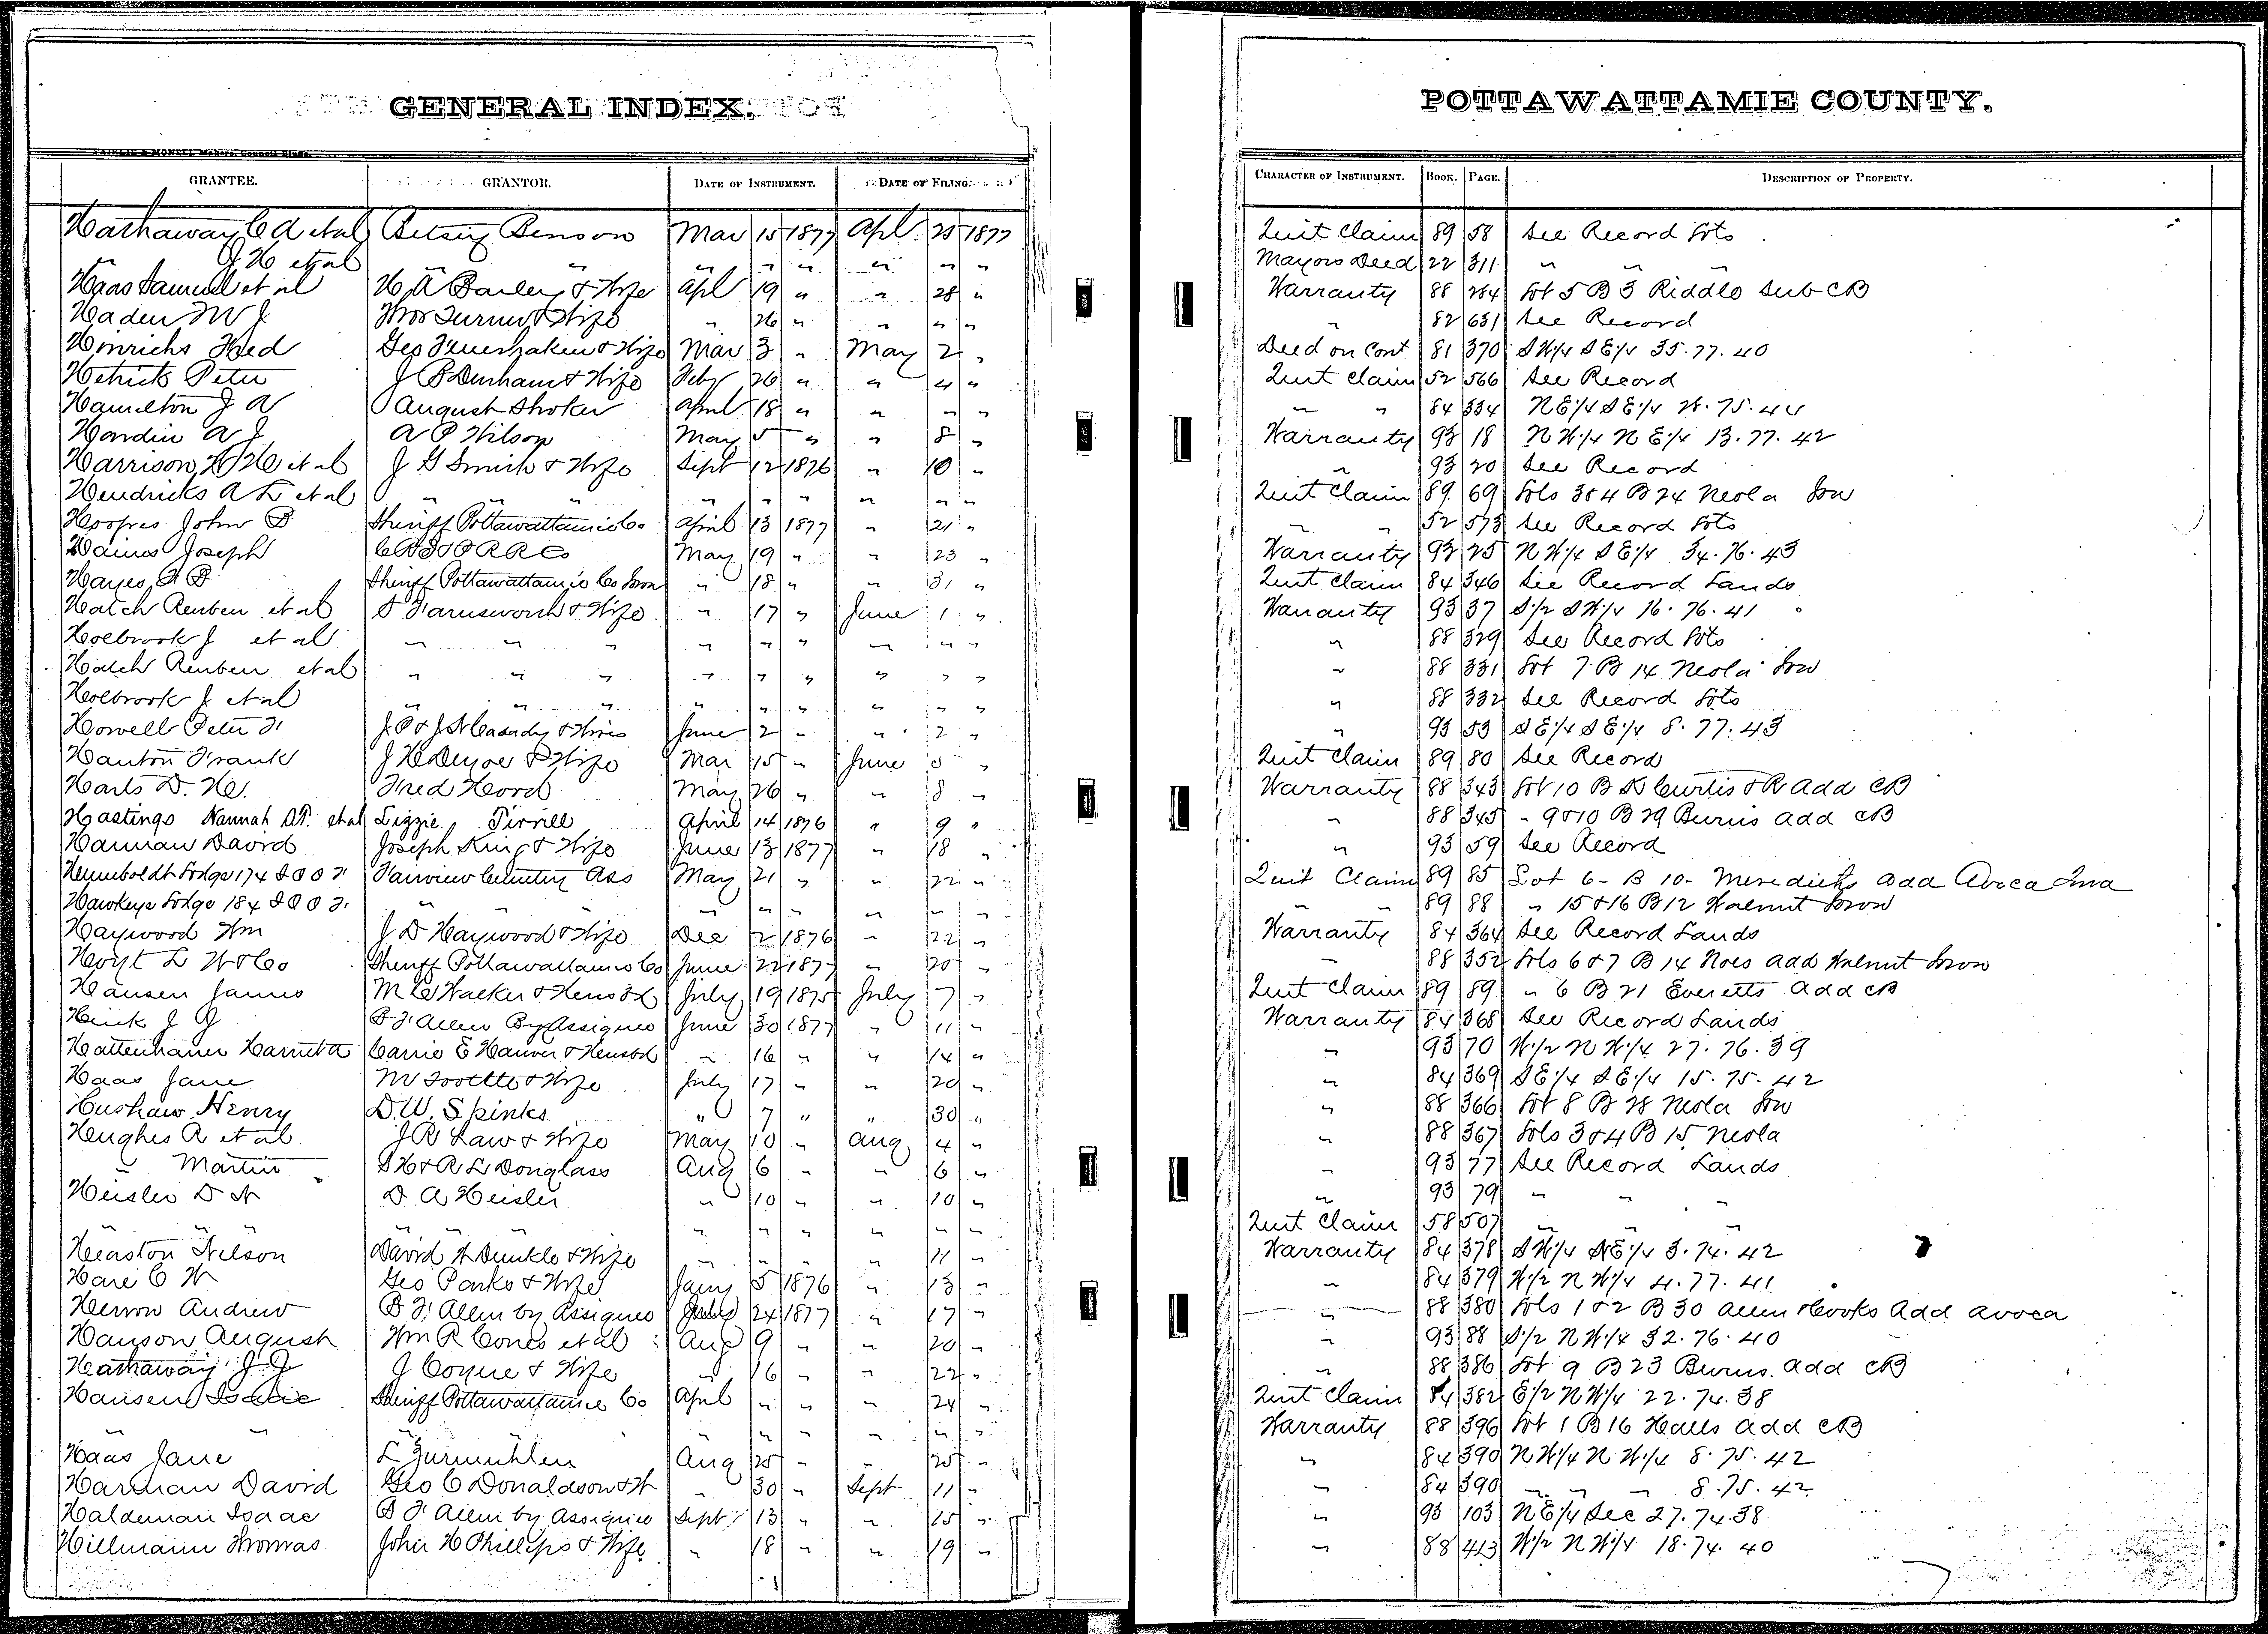 GENERAL INDEX.
FAIRLIE & MONELL Makers, Council Bluffs.
GRANTEE. GRANTOR. DATE OF INSTRUMENT. DATE OF FILING.
Hathaway C A et al Betsey Benson Mar 15 1877 Apl 25 1877
" J H et al " " " " " " " "
Haas Samuel et al H A Bailey & Wife Apl 19 " " 28 "
Haden M J Thos Turner & Wife " 26 " " " "
Hinrichs Fred Geo & Wife Mar 3 " May 2 "
Hetrick Peter J P Denham & Wife Feby 26 " " 4 "
Hamilton J A August Shoker April 18 " " " "
Hardin A J A P Wilson May 5 " " 8 "
Harrison H H et al J G Smith & Wife Sept 12 1876 " 10 "
Hendricks A L et al " " " " " " " " "
Hoopes John B Sheriff Pottawattamie Co April 13 1877 " 21 "
Haines Joseph C R I & P R R Co May 19 " " 23 "
Hayes F B Sheriff Pottawattamie Co Iowa " 18 " " 31 "
Hatch Reuben et al S Farnsworth & Wife " 17 " June 1 "
Holbrook J et al " " " " " " " " "
Hatch Reuben et al " " " " " " " " "
Holbrook J et al " " " " " " " " "
Howell Peter F J P & J N Casady & Wives June 2 " " 2 "
Hanton Frank J H Deyoe & Wife Mar 15 " June 5 "
Harts D. H. Fred Hord May 26 " " 8 "
Hastings Hannah A.P. et al Lizzie Tirrill April 14 1876 " 9 "
Harman David Joseph King & Wife June 13 1877 " 18 "
Humboldt Lodge 174 I O O F Fairview Cemetery Ass May 21 " " 22 "
Hawkeye Lodge 184 I O O F " " " " " " " "
Haywood Wm J D Haywood & Wife Dec 2 1876 " 22 "
Hoyt L W & Co Sheriff Pottawattamie Co June 22 1877 " 20 "
Hansen James M C Walker & Husbd July 19 1875 July 7 "
Huck J J B F Allen By Assignee June 30 1877 " 11 "
Hattenhauer Harriet A Carrie E Hauver & Husbd " 16 " " 14 "
Haas Jane M Tootle & Wife July 17 " " 20 "
Hushaw Henry D.W. Spinks " 7 " " 30 "
Hughes R et al J R Law & Wife May 10 " Aug 4 "
" Martin " S H & R L Douglass Aug 6 " " 6 "
Heisler D N D A Heisler " 10 " " 10 "
" " " " " " " " " " " "
Heaston Nelson David N Dunkle & Wife " " " " 11 "
Hare C W Geo Parks & Wife Jany 5 1876 " 13 "
Herron Andrew B F Allen by Assignee July 24 1877 " 17 "
Hanson August Wm R Cones et al Aug 9 " " 20 "
Hathaway J J J Coyne & Wife " 16 " " 22 "
Hansen Isaac Sheriff Pottawattamie Co April " " " 24 "
" " " " " " "
Haas Jane L Zurmuhlen Aug 25 " " 25 "
Harman David Geo C Donaldson & W " 30 " Sept 11 "
Haldeman Isaac B F Allen by Assignee Sept 13 " " 15 "
Hillmann Thomas John H Phillips & Wife " 18 " " 19 "
POTTAWATTAMIE COUNTY.
CHARACTER OF INSTRUMENT. BOOK. PAGE. DESCRIPTION OF PROPERTY.
Quit Claim 89 58 See Record Lots
Mayors Deed 22 311 " " "
Warranty 88 284 Lot 5 B 3 Riddle Sub CB
" 82 631 See Record
Deed on Cont 81 370 S W/4 S E/4 35.77.40
Quit Claim 52 566 See Record
" " 84 334 N E/4 S E/4 .75.44
Warranty 93 18 N W/4 N E/4 13.77.42
" 93 20 See Record
Quit Claim 89 69 Lots 3&4 B 24 Neola Iow
" " 52 573 See Record Lots
Warranty 93 25 N W/4 S E/4 34.76.43
Quit Claim 84 346 See Record Lands
Warranty 93 37 S/2 S W/4 16.76.41
" 88 329 See Record Lots
" 88 331 Lot 7 B 14 Neola Iow
" 88 332 See Record Lots
" 93 53 S E/4 S E/4 8.77.43
Quit Claim 89 80 See Record
Warranty 88 343 Lot 10 B K Curtis & R Add CB
" 88 345 " 9&10 B 29 Burns Add CB
" 93 59 See Record
Quit Claim 89 85 Lot 6 - B 10 - Merediths Add Avoca Iowa
" " 89 88 " 15&16 B12 Walnut Iowa
Warranty 84 364 See Record Lands
" 88 352 Lots 6&7 B 14 Noes Add Walnut Iowa
Quit Claim 89 89 " 6 B 21 Everetts Add CB
Warranty 84 368 See Record Lands
" 93 70 W/2 N W/4 27.76.39
" 84 369 S E/4 S E/4 15.75.42
" 88 366 Lot 8 B 28 Neola Iow
" 88 367 Lots 3&4 B 15 Neola
" 93 77 See Record Lands
" 93 79 " " "
Quit Claim 58 507 " " "
Warranty 84 378 S W/4 N E/4 3.74.42
" 84 379 W/2 N W/4 4.77.41
" 88 380 Lots 1&2 B 30 Allen & Cooks Add Avoca
" 93 88 S/2 N W/4 32.76.40
" 88 386 Lot 9 B 23 Burns Add CB
Quit Claim 84 382 E/2 N W/4 22.74.38
Warranty 88 396 Lot 1 B 16 Halls Add CB
" 84 390 N W/4 N W/4 8.75.42
" 84 390 " " " 8.75.42
" 93 103 N E/4 Sec 27.74.38
" 88 413 W/2 N W/4 18.74.40